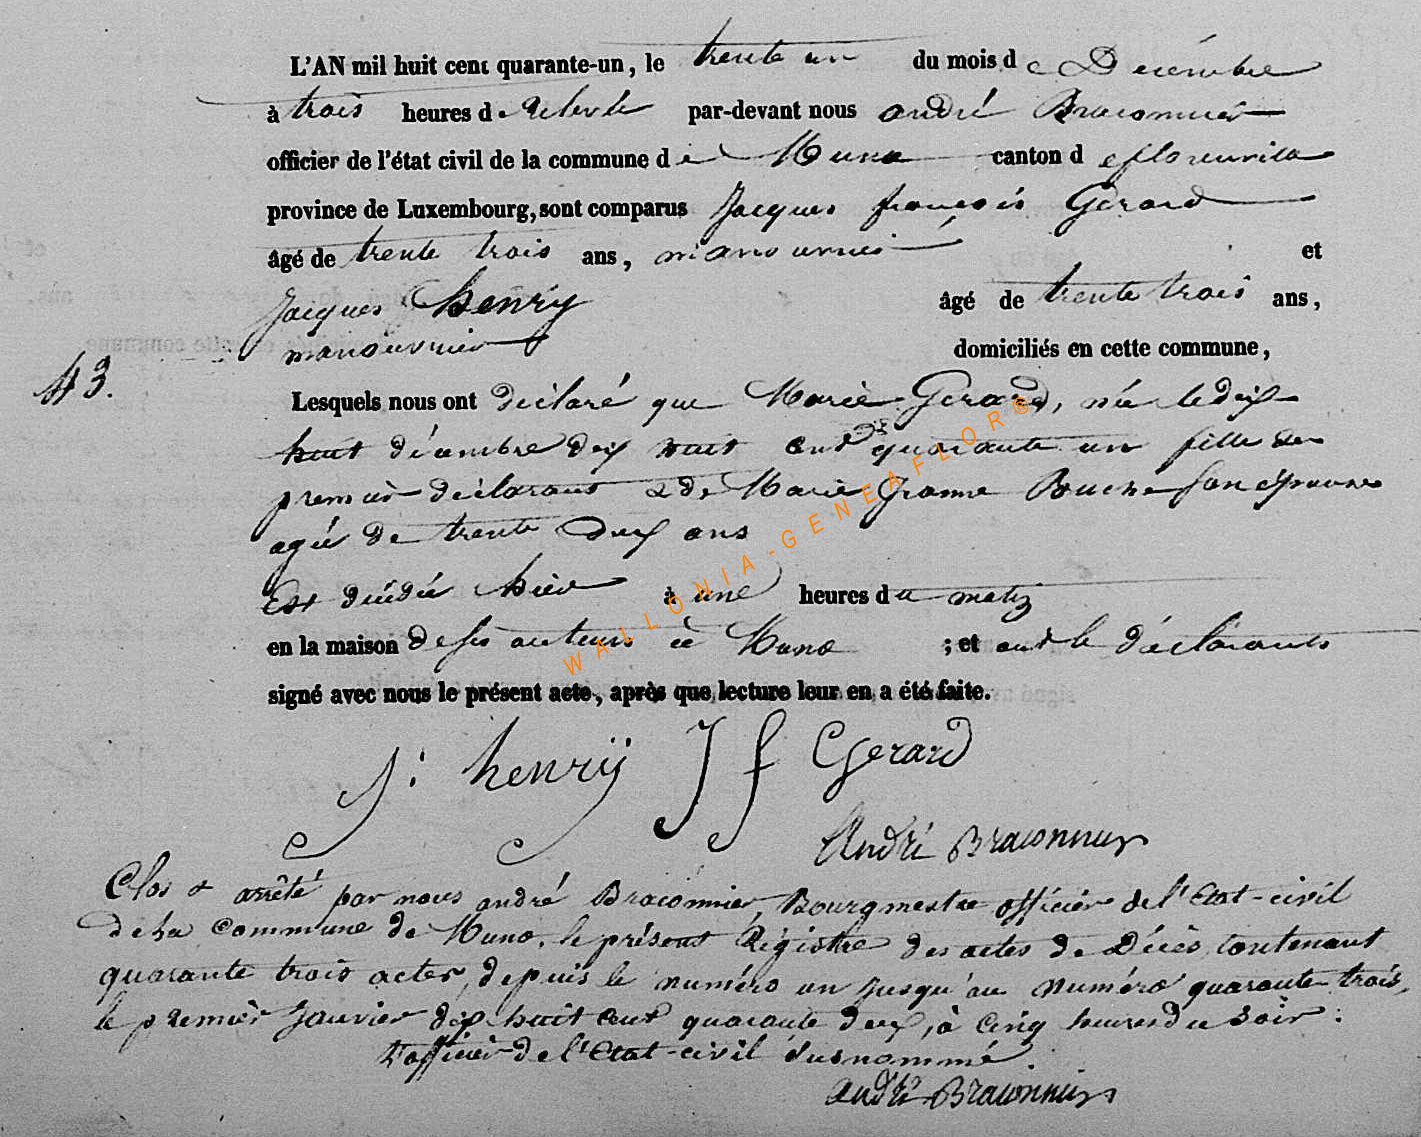 L'AN mil huit cent quarante-un, le trente un du mois de Décembre
à trois heures de Relevée par-devant nous andré Braconnier
officier de l'état civil de la commune de Muno canton de florenville
province de Luxembourg, sont comparus Jacques françois Gerard
âgé de trente trois ans, manouvrier et
Jacques henry âgé de trente trois ans,
manouvrier domiciliés en cette commune,
43.
Lesquels nous ont déclaré que Marie Gerard, née le dix
huit décembre dix huit cent quarante un fille du
premier déclarant & de Marie Jeanne son épouse
agée de trente deux ans
Est décédée hier à une heures du matin
en la maison de ses auteurs à Muno ; et ont le déclarants
signé avec nous le présent acte, après que lecture leur en a été faite.
J. henrÿ J f Gerard
André Braconnier
Clos & arrêté par nous andré Braconnier, Bourgmestre officier de l'Etat-civil
de la Commune de Muno, le présent Régistre des actes de Décès, contenant
quarante trois actes, depuis le numéro un jusqu'au numéro quarante trois,
le premier Janvier dix huit cent quarante deux, à cinq heures du soir.
L'officier de l'Etat-civil susnommé
andré Braconnier
WALLONIA-GENEAFLOR®